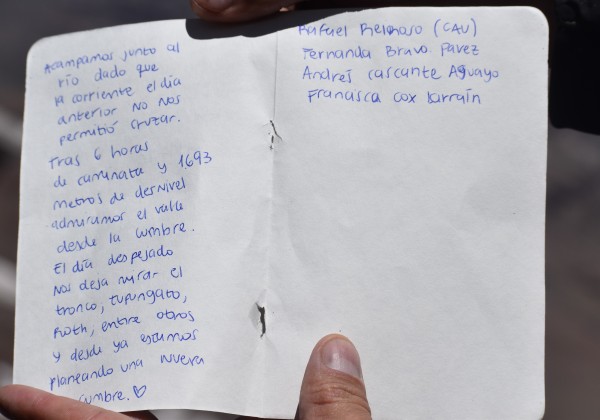 Acampamos junto al
río dado que
la corriente el día
anterior no nos
permitió cruzar.
Tras 6 horas
de caminata y 1693
metros de desnivel
admiramos el valle
desde la cumbre.
El día despejado
nos deja mirar el
tronco, tupungato,
Roth, entre otros
y desde ya estamos
planeando una nueva
cumbre. ♡
Rafael (CAU)
Fernanda Bravo Pavez
Andrés Cascante Aguayo
Francisca Cox Larraín